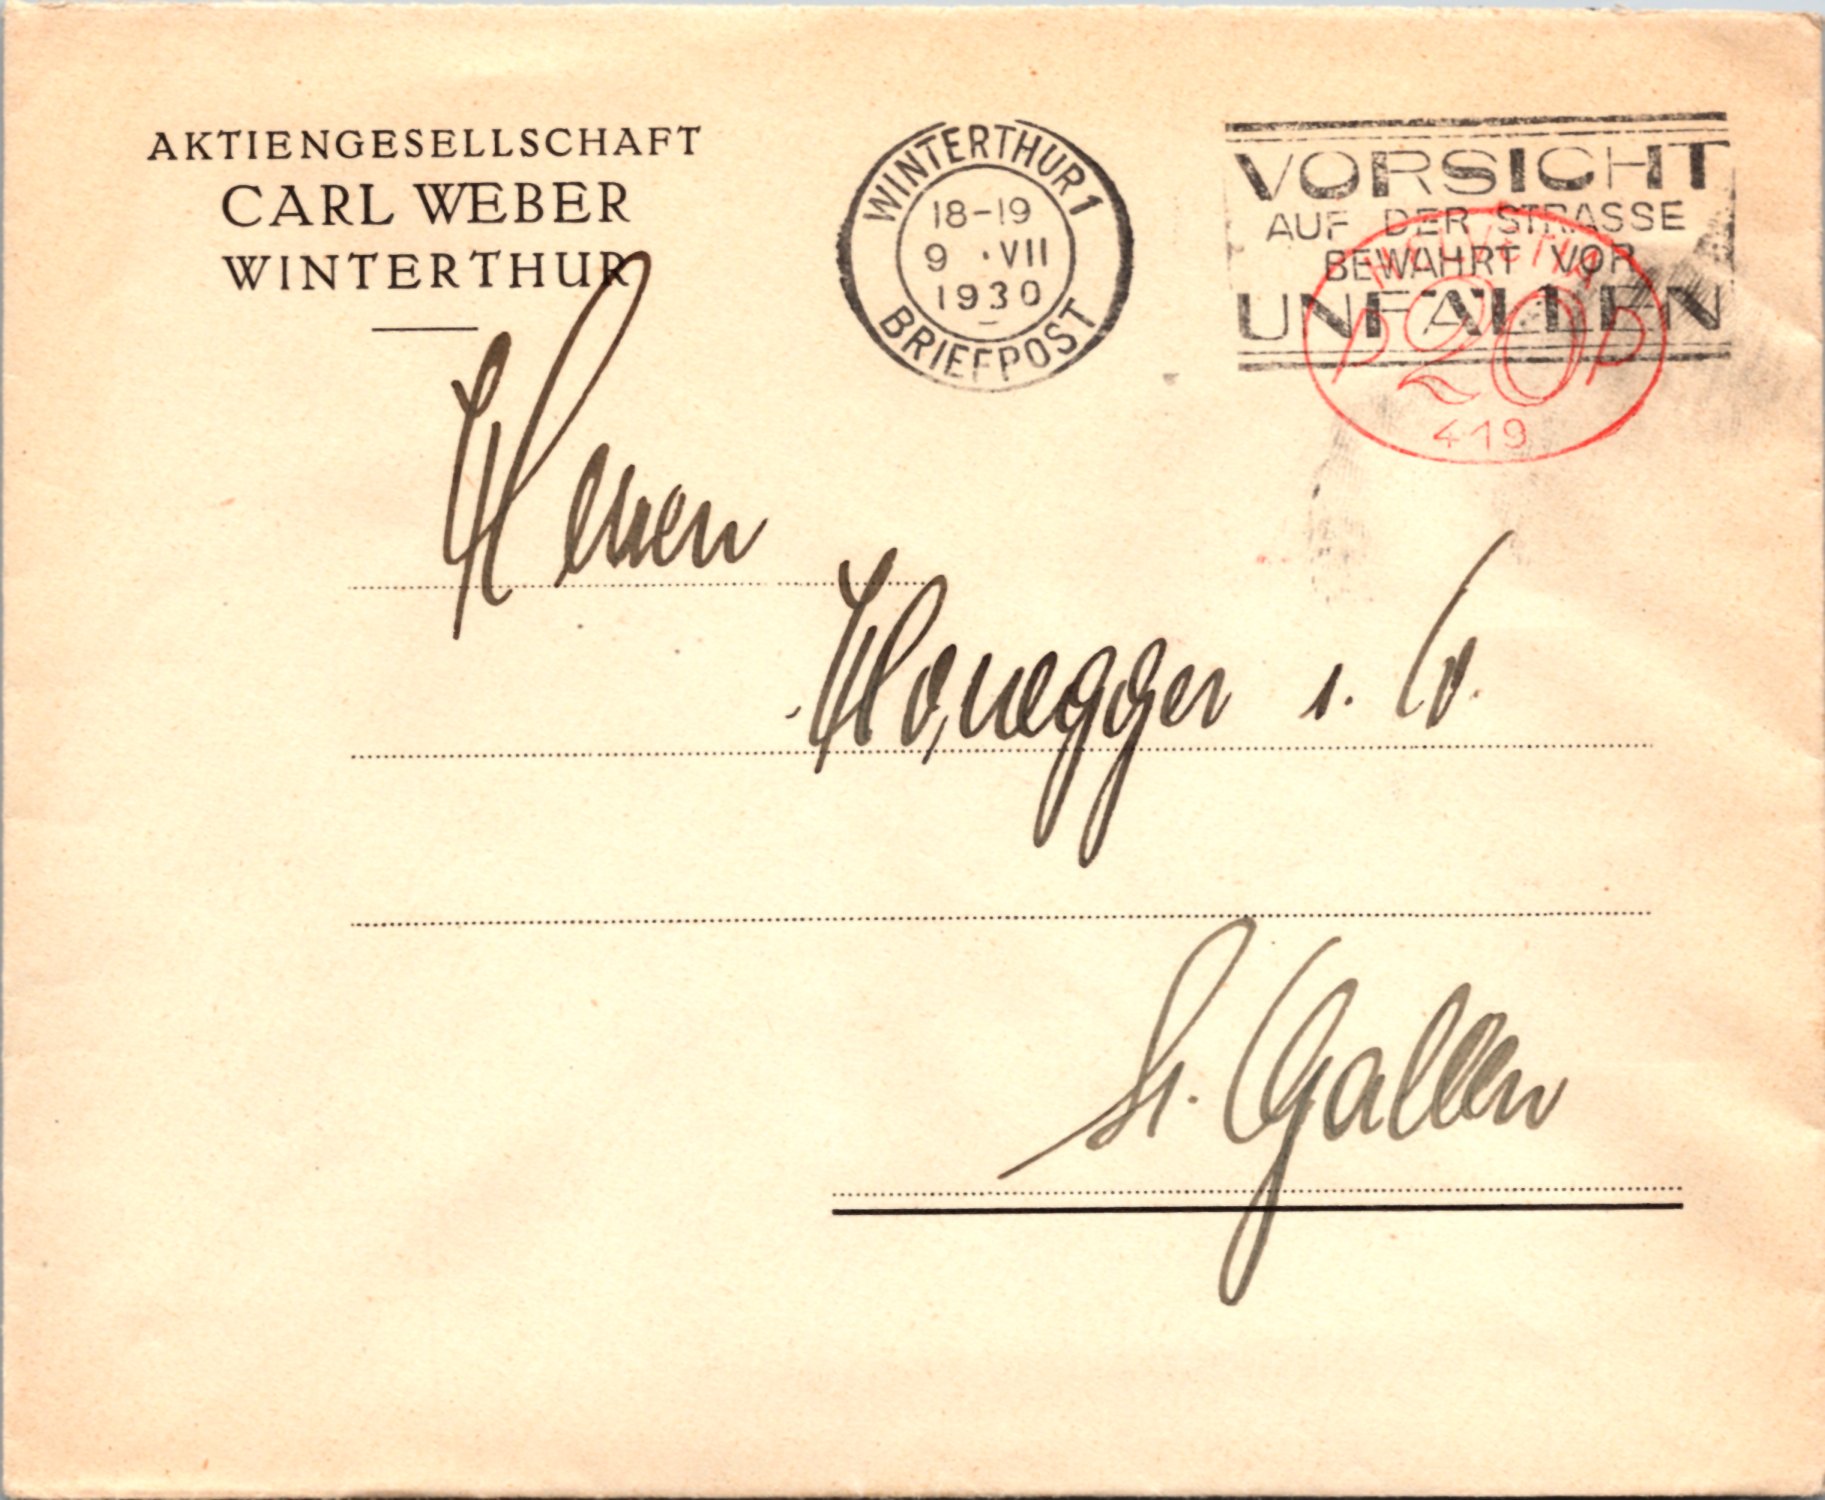 AKTIENGESELLSCHAFT
CARL WEBER
WINTERTHUR
WINTERTHUR 1
18-19
9 ·VII
1930
BRIEFPOST
VORSICHT
AUF DER STRASSE
BEWAHRT VOR
UNFÄLLEN
HELVETIA
P 20 P
419
Herren
Honegger &. Co.
St. Gallen